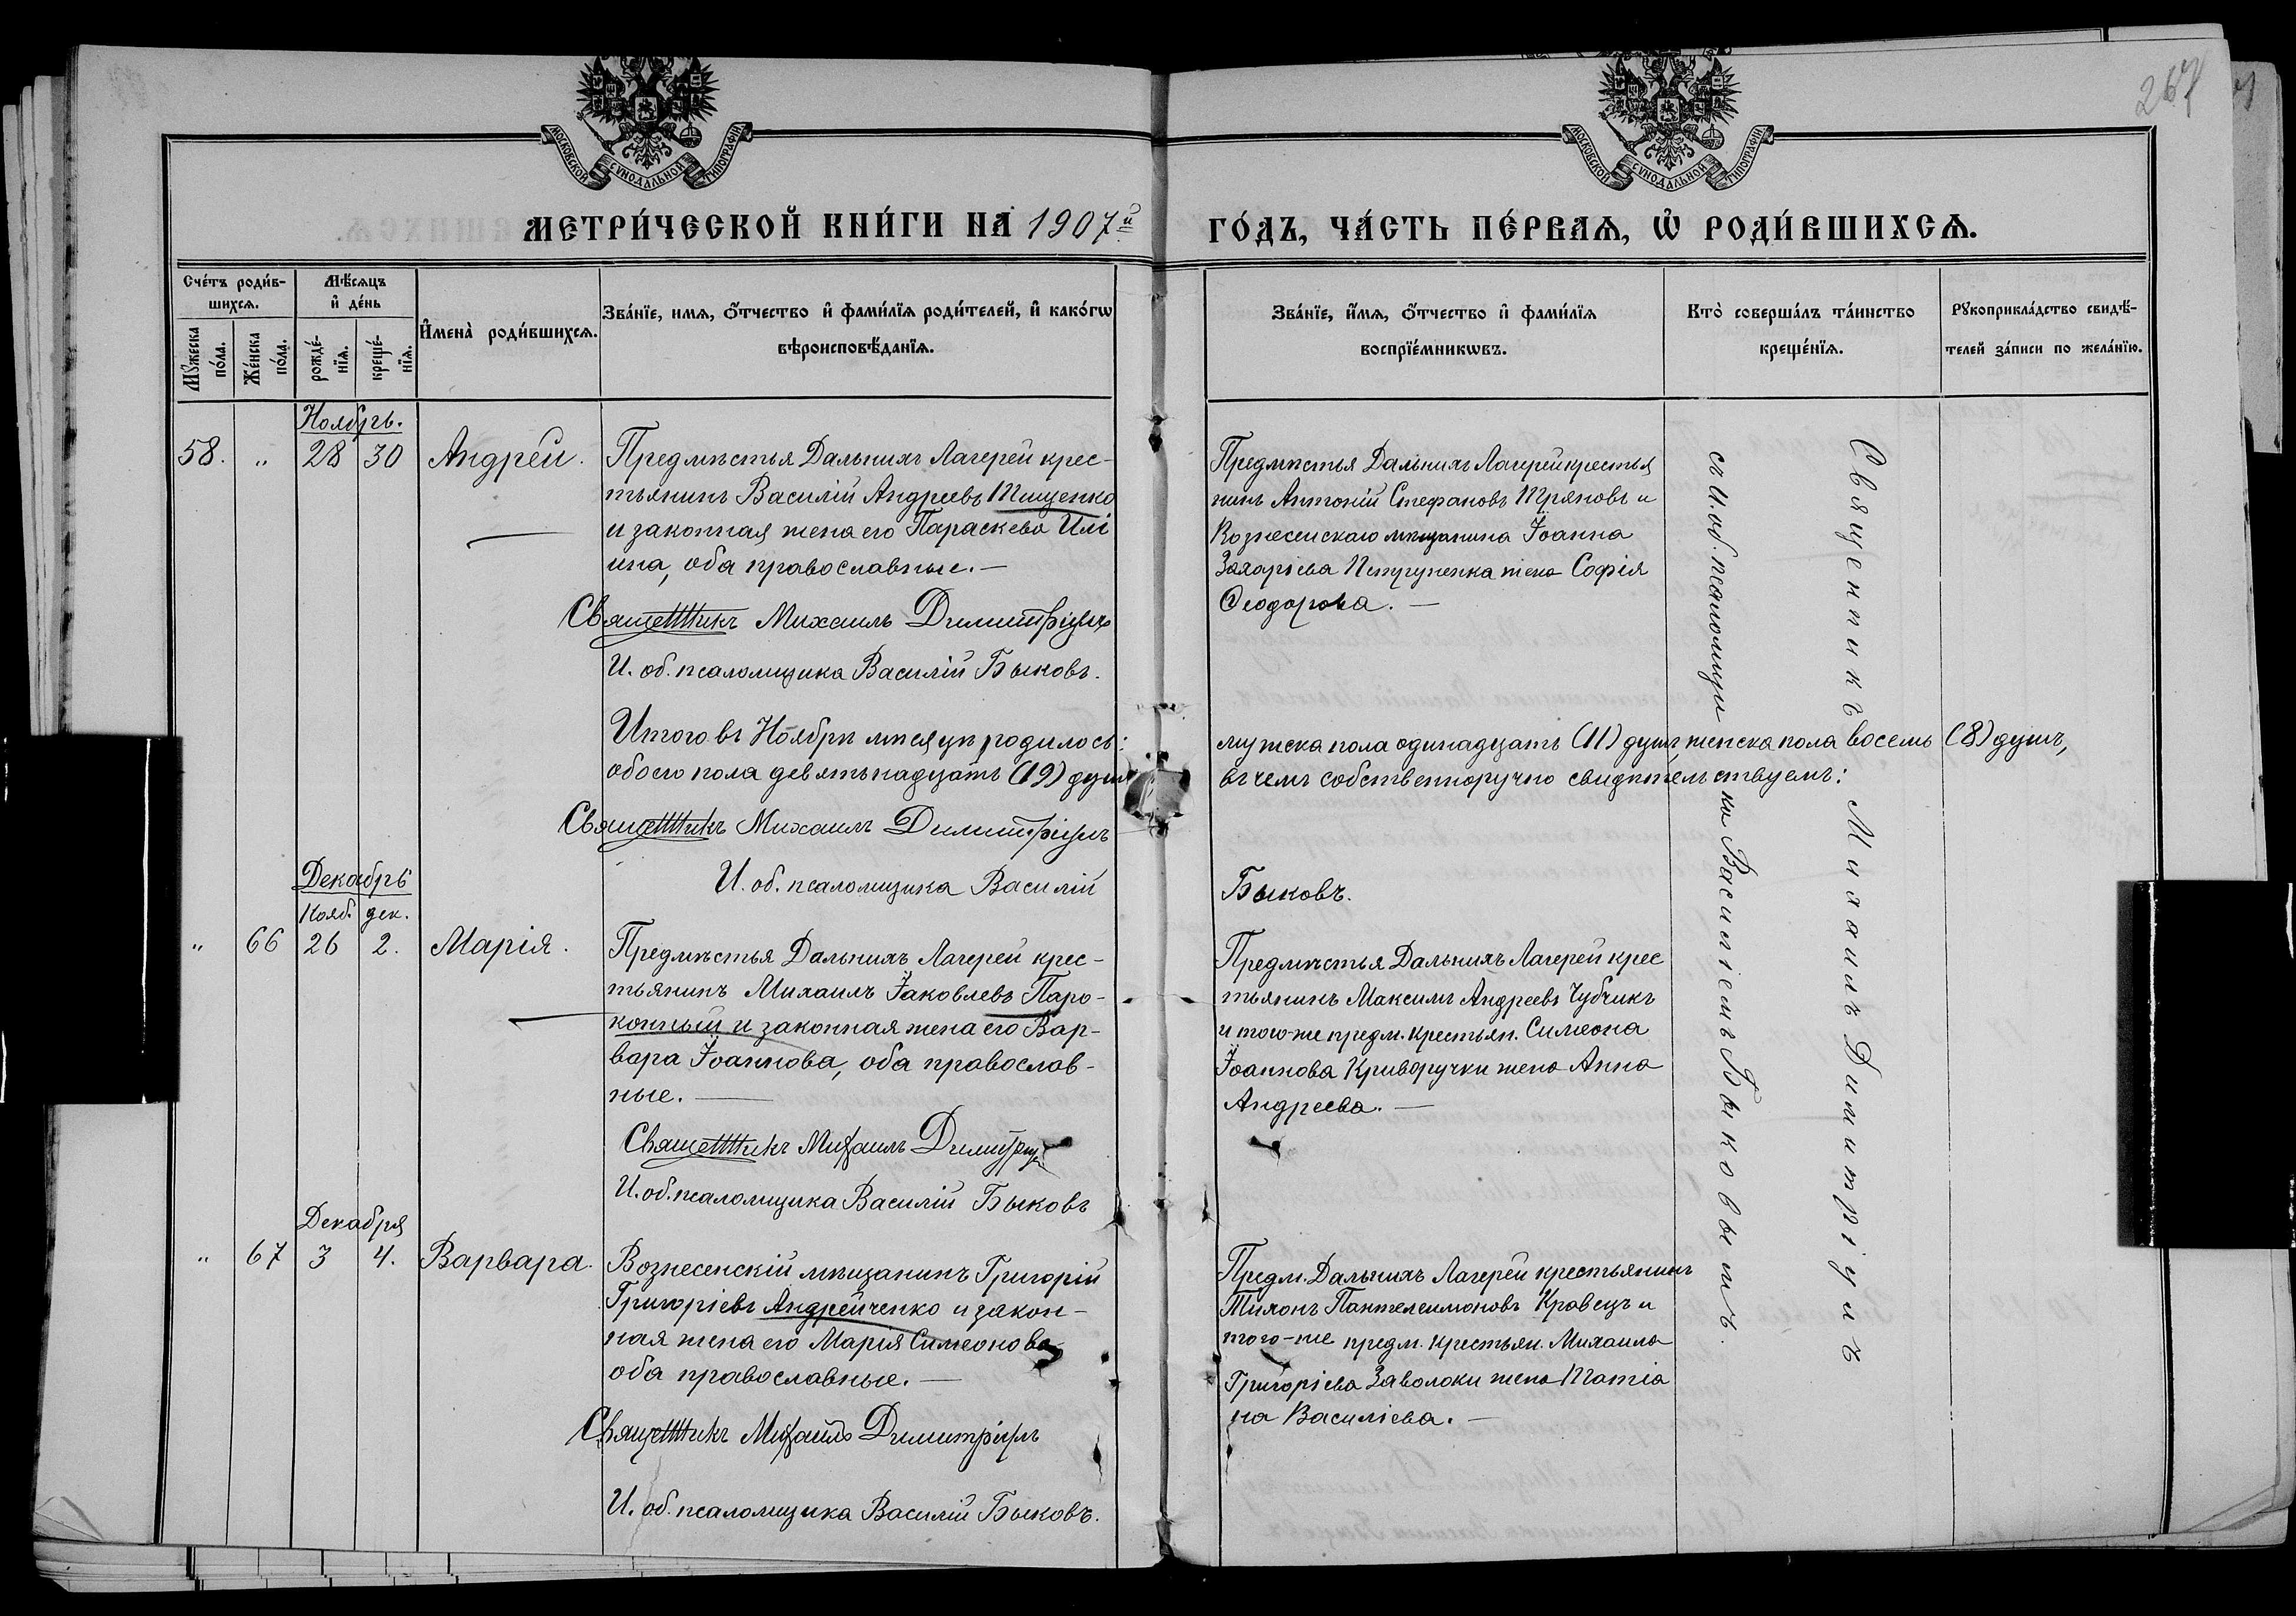 267
МОСКОВСКОЙ СѴНОДАЛЬНОЙ ТИПОГРАФІИ
МОСКОВСКОЙ СѴНОДАЛЬНОЙ ТИПОГРАФІИ
МЕТРИ́ЧЕСКОЙ КНИ́ГИ НА 1907й
ГО́ДЪ, ЧА́СТЬ ПЕ́РВАѦ, Ѡ҆ РОДИ́ВШИХСѦ.
Сче́тъ роди́в-
шихсѧ.
Мꙋ́жеска
по́ла.
Же́нска
по́ла.
Мѣ́сѧцъ
и҆ де́нь
рожде́-
нїѧ.
креще́-
нїѧ.
И҆мена̀ роди́вшихсѧ.
Зва́нїе, имѧ, ѻ҆́тчество и҆ фами́лїѧ роди́телей, и҆ како́гѡ
вѣроисповѣ́данїѧ.
Зва́нїе, и҆́мѧ, ѻ҆́тчество и҆ фами́лїѧ
воспрїе́мникѡвъ.
Кто̀ соверша́лъ та́инство
креще́нїѧ.
Рꙋкоприкла́дство свидѣ́-
телей за́писи по жела́нїю.
Ноябрь.
58. " 28 30 Андрей.
Предмѣстья Дальнихъ Лагерей крес-
тьянинъ Василій Андреевъ Тищенко
и законная жена его Параскева Илі
ина, оба православные.—
Священникъ Михаилъ Димитріумъ
И. об. псаломщика Василій Быковъ.
Предмѣстья Дальнихъ Лагерей крестья
нинъ Антоній Стефановъ Тряновъ и
Вознесенскаго мѣщанина Іоанна
Захаріева жена Софія
Ѳеодорова.—
Священникъ Михаилъ Димитріумъ
съ И. об. псаломщика Василіемъ Быковымъ.
Итого въ Ноябрѣ мѣсяцѣ родилось:
мужска пола одинадцать (11) душъ, женска пола восемь (8) душъ,
обоего пола девятьнадцать (19) душъ
въ чемъ собственноручно свидѣтельствуемъ:
Священникъ Михаилъ Димитріумъ
И. об. псаломщика Василій
Быковъ.
Декабрь
Нояб. дек.
" 66 26 2. Марія.
Предмѣстья Дальнихъ Лагерей крес-
тьянинъ Михаилъ Іаковлевъ Паро-
конный и законная жена его Вар-
вара Іоаннова, оба православ-
ные.—
Священникъ Михаилъ Димитріумъ
И. об. псаломщика Василій Быковъ
Предмѣстья Дальнихъ Лагерей крес
тьянинъ Максимъ Андреевъ Чубчикъ
и того-же предм. крестьян. Симеона
Іоаннова Криворучки жена Анна
Андреева.—
Декабря
" 67 3 4. Варвара.
Вознесенскій мѣщанинъ Григорій
Григоріевъ Андрейченко и закон-
ная жена его Марія Симеонова
оба православные.—
Священникъ Михаилъ Димитріумъ
И. об. псаломщика Василій Быковъ.
Предм. Дальнихъ Лагерей крестьянинъ
Тихонъ Пантелеимоновъ Кравецъ и
того-же предм. крестьян. Михаила
Григоріева Заволоки жена Татіа
на Василіева.—